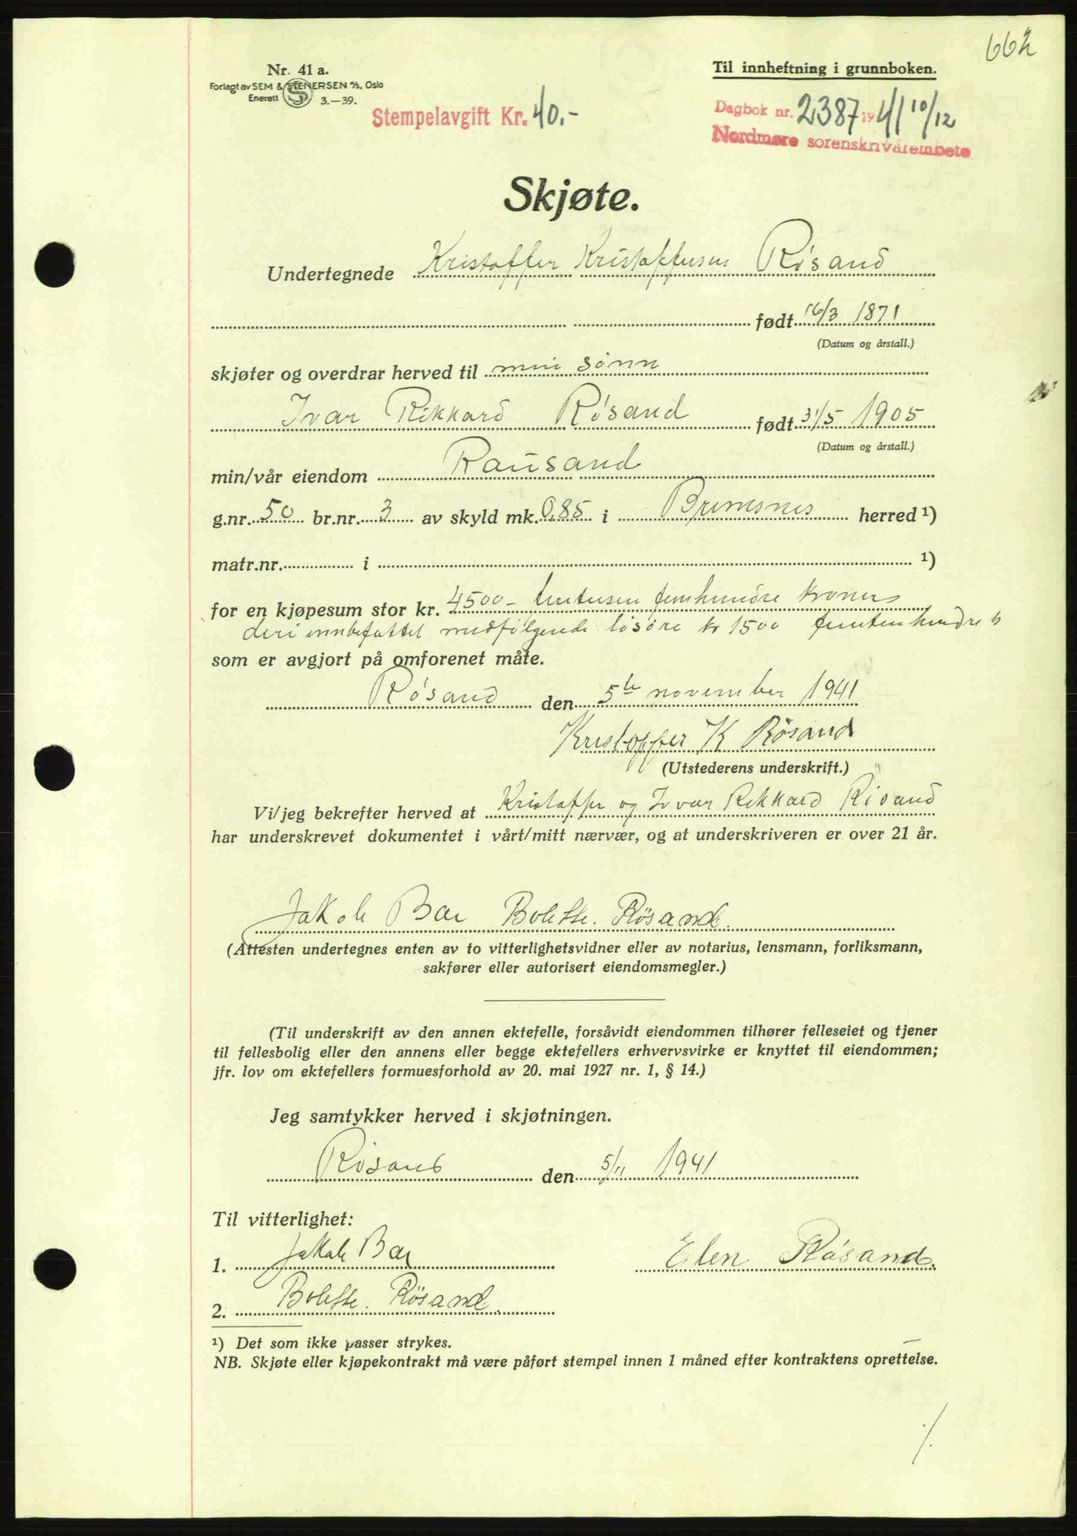 662
Nr. 41 a.
Forlagt av SEM & STENERSEN A/S, Oslo
Enerett 3.—39.
Til innheftning i grunnboken.
Stempelavgift Kr. 40.-
Dagbok nr. 2387 1941 10/12
Nordmøre sorenskriverembete
Skjøte.
Undertegnede Kristoffer Kristoffersen Røsand
født 16/3 1871
(Datum og årstall.)
skjøter og overdrar herved til min sønn
Ivar Rikkard Røsand født 31/5 1905
(Datum og årstall.)
min/vår eiendom Rausand
g.nr. 50 br.nr. 3 av skyld mk. 0,85 i Bremsnes herred ¹)
matr.nr. i ¹)
for en kjøpesum stor kr. 4500 - femhundre kroner
deri innbefattet medfølgende løsøre kr 1500 femtenhundre k
som er avgjort på omforenet måte.
Røsand den 5te november 1941
Kristoffer K Røsand
(Utstederens underskrift.)
Vi/jeg bekrefter herved at Kristoffer og Ivar Rikkard Røsand
har underskrevet dokumentet i vårt/mitt nærvær, og at underskriveren er over 21 år.
Jakob Bae Bolette. Røsand.
(Attesten undertegnes enten av to vitterlighetsvidner eller av notarius, lensmann, forliksmann,
sakfører eller autorisert eiendomsmegler.)
(Til underskrift av den annen ektefelle, forsåvidt eiendommen tilhører felleseiet og tjener
til fellesbolig eller den annens eller begge ektefellers erhvervsvirke er knyttet til eiendommen;
jfr. lov om ektefellers formuesforhold av 20. mai 1927 nr. 1, § 14.)
Jeg samtykker herved i skjøtningen.
Røsand den 5/11 1941
Til vitterlighet:
1. Jakob Bae
Elen Røsand.
2. Bolette. Røsand.
¹) Det som ikke passer strykes.
NB. Skjøte eller kjøpekontrakt må være påført stempel innen 1 måned efter kontraktens oprettelse.